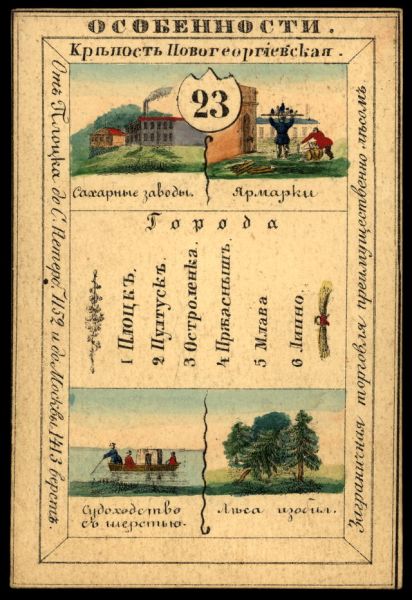 ОСОБЕННОСТИ.
Крѣпость Новогеоргіевская.
23
Сахарные заводы.
Ярмарки
Отъ Плоцка до С. Петерб. 1152 и до Москвы 1413 верстъ.
Города
1 Плоцкъ.
2 Пултускъ.
3 Остроленка.
4 Пржаснышъ.
5 Млава
6 Липно.
Заграничная торговля преимущественно лѣсомъ
Судоходство
съ шерстью.
Лѣса изобил.